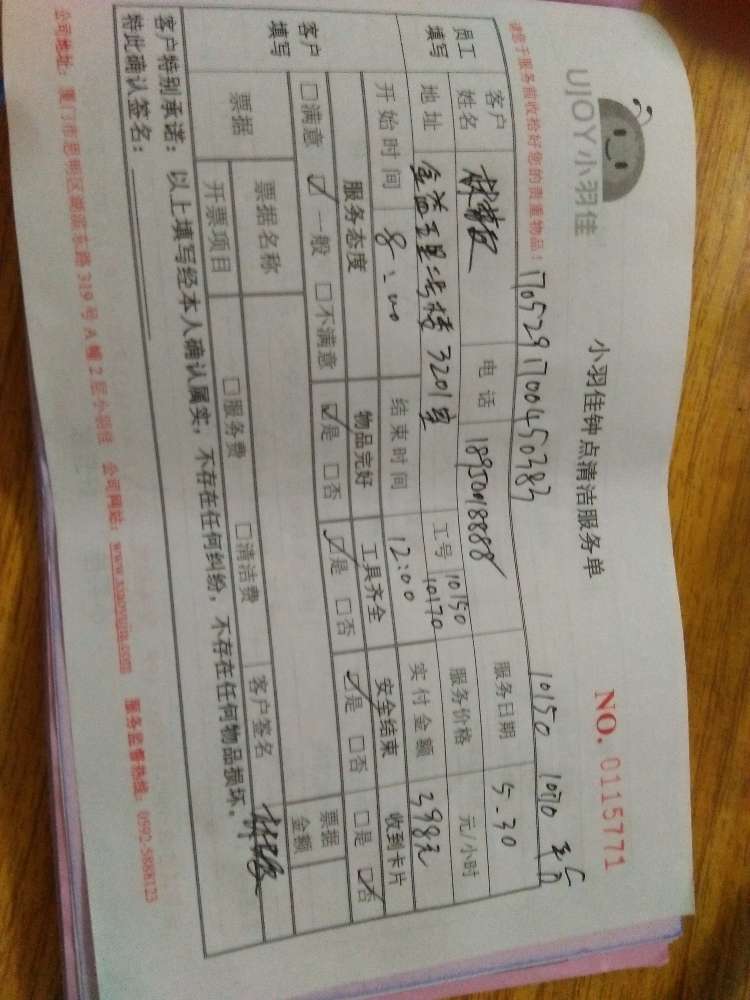 UJOY小羽佳
小羽佳钟点清洁服务单
NO. 0115771
请您于服务前收拾好您的贵重物品！
1705291700450383
10150
员工填写
客户姓名
电话
18950018888
服务日期
5-30
地址
3201室
工号
10150
10170
服务价格
元/小时
开始时间
8:00
结束时间
12:00
实付金额
398元
客户填写
服务态度
物品完好
工具齐全
安全结束
收到卡片
□满意 ☑一般 □不满意
☑是 □否
☑是 □否
☑是 □否
□是 ☑否
票据
票据名称
票据金额
开票项目
□服务费 □清洁费
客户签名
客户特别承诺：以上填写经本人确认属实，不存在任何纠纷，不存在任何物品损坏。
特此确认签名：
公司地址：厦门市思明区湖滨东路319号A幢2层小羽佳 公司网站：www.xiaoyujia.com 服务监督热线：0592-5888123